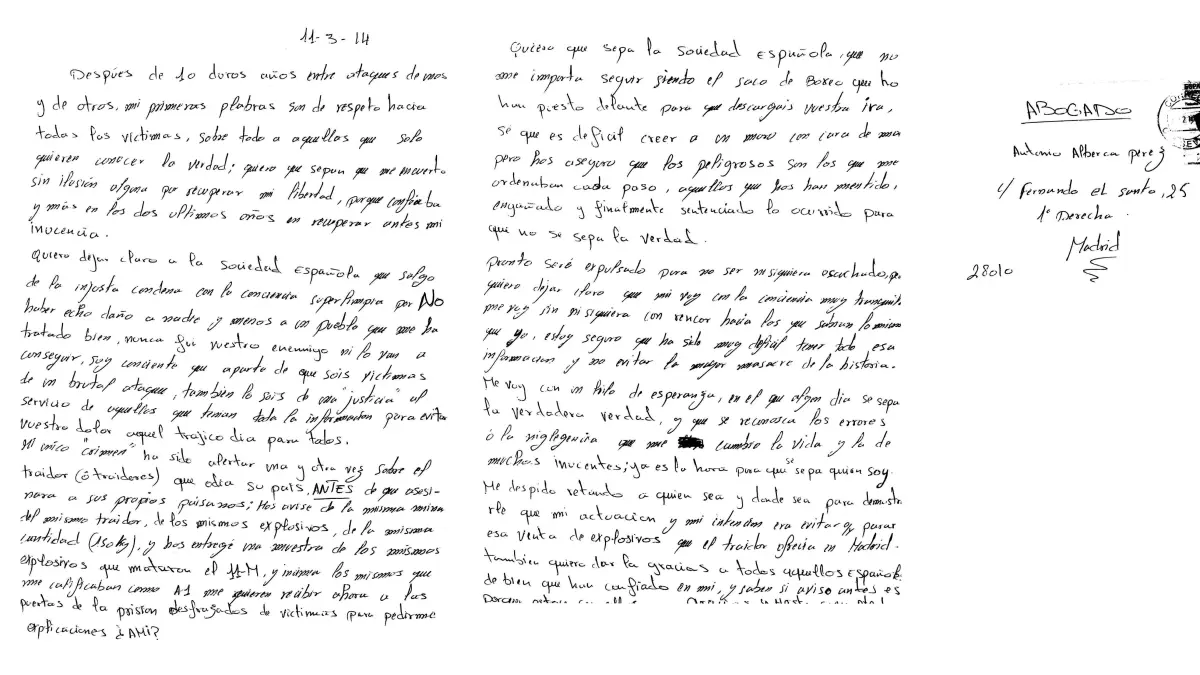 11-3-14
Despúes de 10 duros años entre ataques de unos
y de otros, mi primeras plabras son de respeto hacia
todas las victimas, sobre todo a aquellos que solo
quieren conocer la verdad; quiero que sepan que me encuentro
sin ilusión alguna por recuperar mi libertad, porque confiaba
y más en los dos ultimos años en recuperar antes mi
inocencia.
Quiero dejar claro a la sociedad Española que salgo
de la injosta condena con la conciencia superlimpia por NO
haber echo daño a nadie y menos a un pueblo que me ha
tratado bien, nunca fui vuestro enemigo ni lo van a
conseguir, soy conciente que aparte de que sois victimas
de un brutal ataque, también lo sois de una "justicia" al
servicio de aquellos que tenian toda la información para evitar
vuestro dolor aquel trajico dia para todos.
Mi unico "crimen" ha sido alertar una y otra vez sobre el
traidor (ó traidores) que odia su pais, ANTES de que asesi-
nara a sus propios paisanos; Hos avise de la misma mina
del mismo traidor, de los mismos explosivos, de la misma
cantidad (150kg), y hos entregé una muestra de los mismos
explosivos que mataron el 11-M, y los mismos que
me calificaban como A1 me quieren recibir ahora a las
puertas de la prision desfrazados de victimas para pedirme
explicaciones ¿AMI?
Quiero que sepa la sociedad Española, que no
me importa seguir siendo el saco de Boxeo que ho
han puesto delante para que descargais vuestra ira,
sé que es deficil creer a un moro con cara de
pero hos aseguro que los peligrosos son los que me
ordenaban cada paso, aquellos que hos han mentido,
engañado y finalmente sentenciado lo ocurrido para
que no se sepa la verdad.
Pronto seré expulsado para no ser nisiquiera escuchado,
quiero dejar claro que mi voy con la conciencia muy tranquila
me voy sin nisiquiera con rencor hacia los que sabian lo mismo
que yo, estoy seguro que ha sido muy dificil tener toda esa
informacion y no evitar la mayor masacre de la historia.
Me voy con un hilo de esperanza, en el que algun dia se sepa
la verdadera verdad, y que se reconosca los errores
ó la niglegencia que me la vida y la de
muchos inucentes; ya es la hora para que se sepa quien soy.
Me despido retando a quien sea y donde sea para demostra
rle que mi actuacion y mi intencion era evitar y parar
esa venta de explosivos que el traidor ofrecia en Madrid.
tambien quiero dar la gracias a todos aquellos Español
de bien que han confiado en mi, y saben si aviso antes es
ABOGADO
Antonio Alberca perez
c/ Fernando el santo, 25
1º Derecha.
Madrid
28010